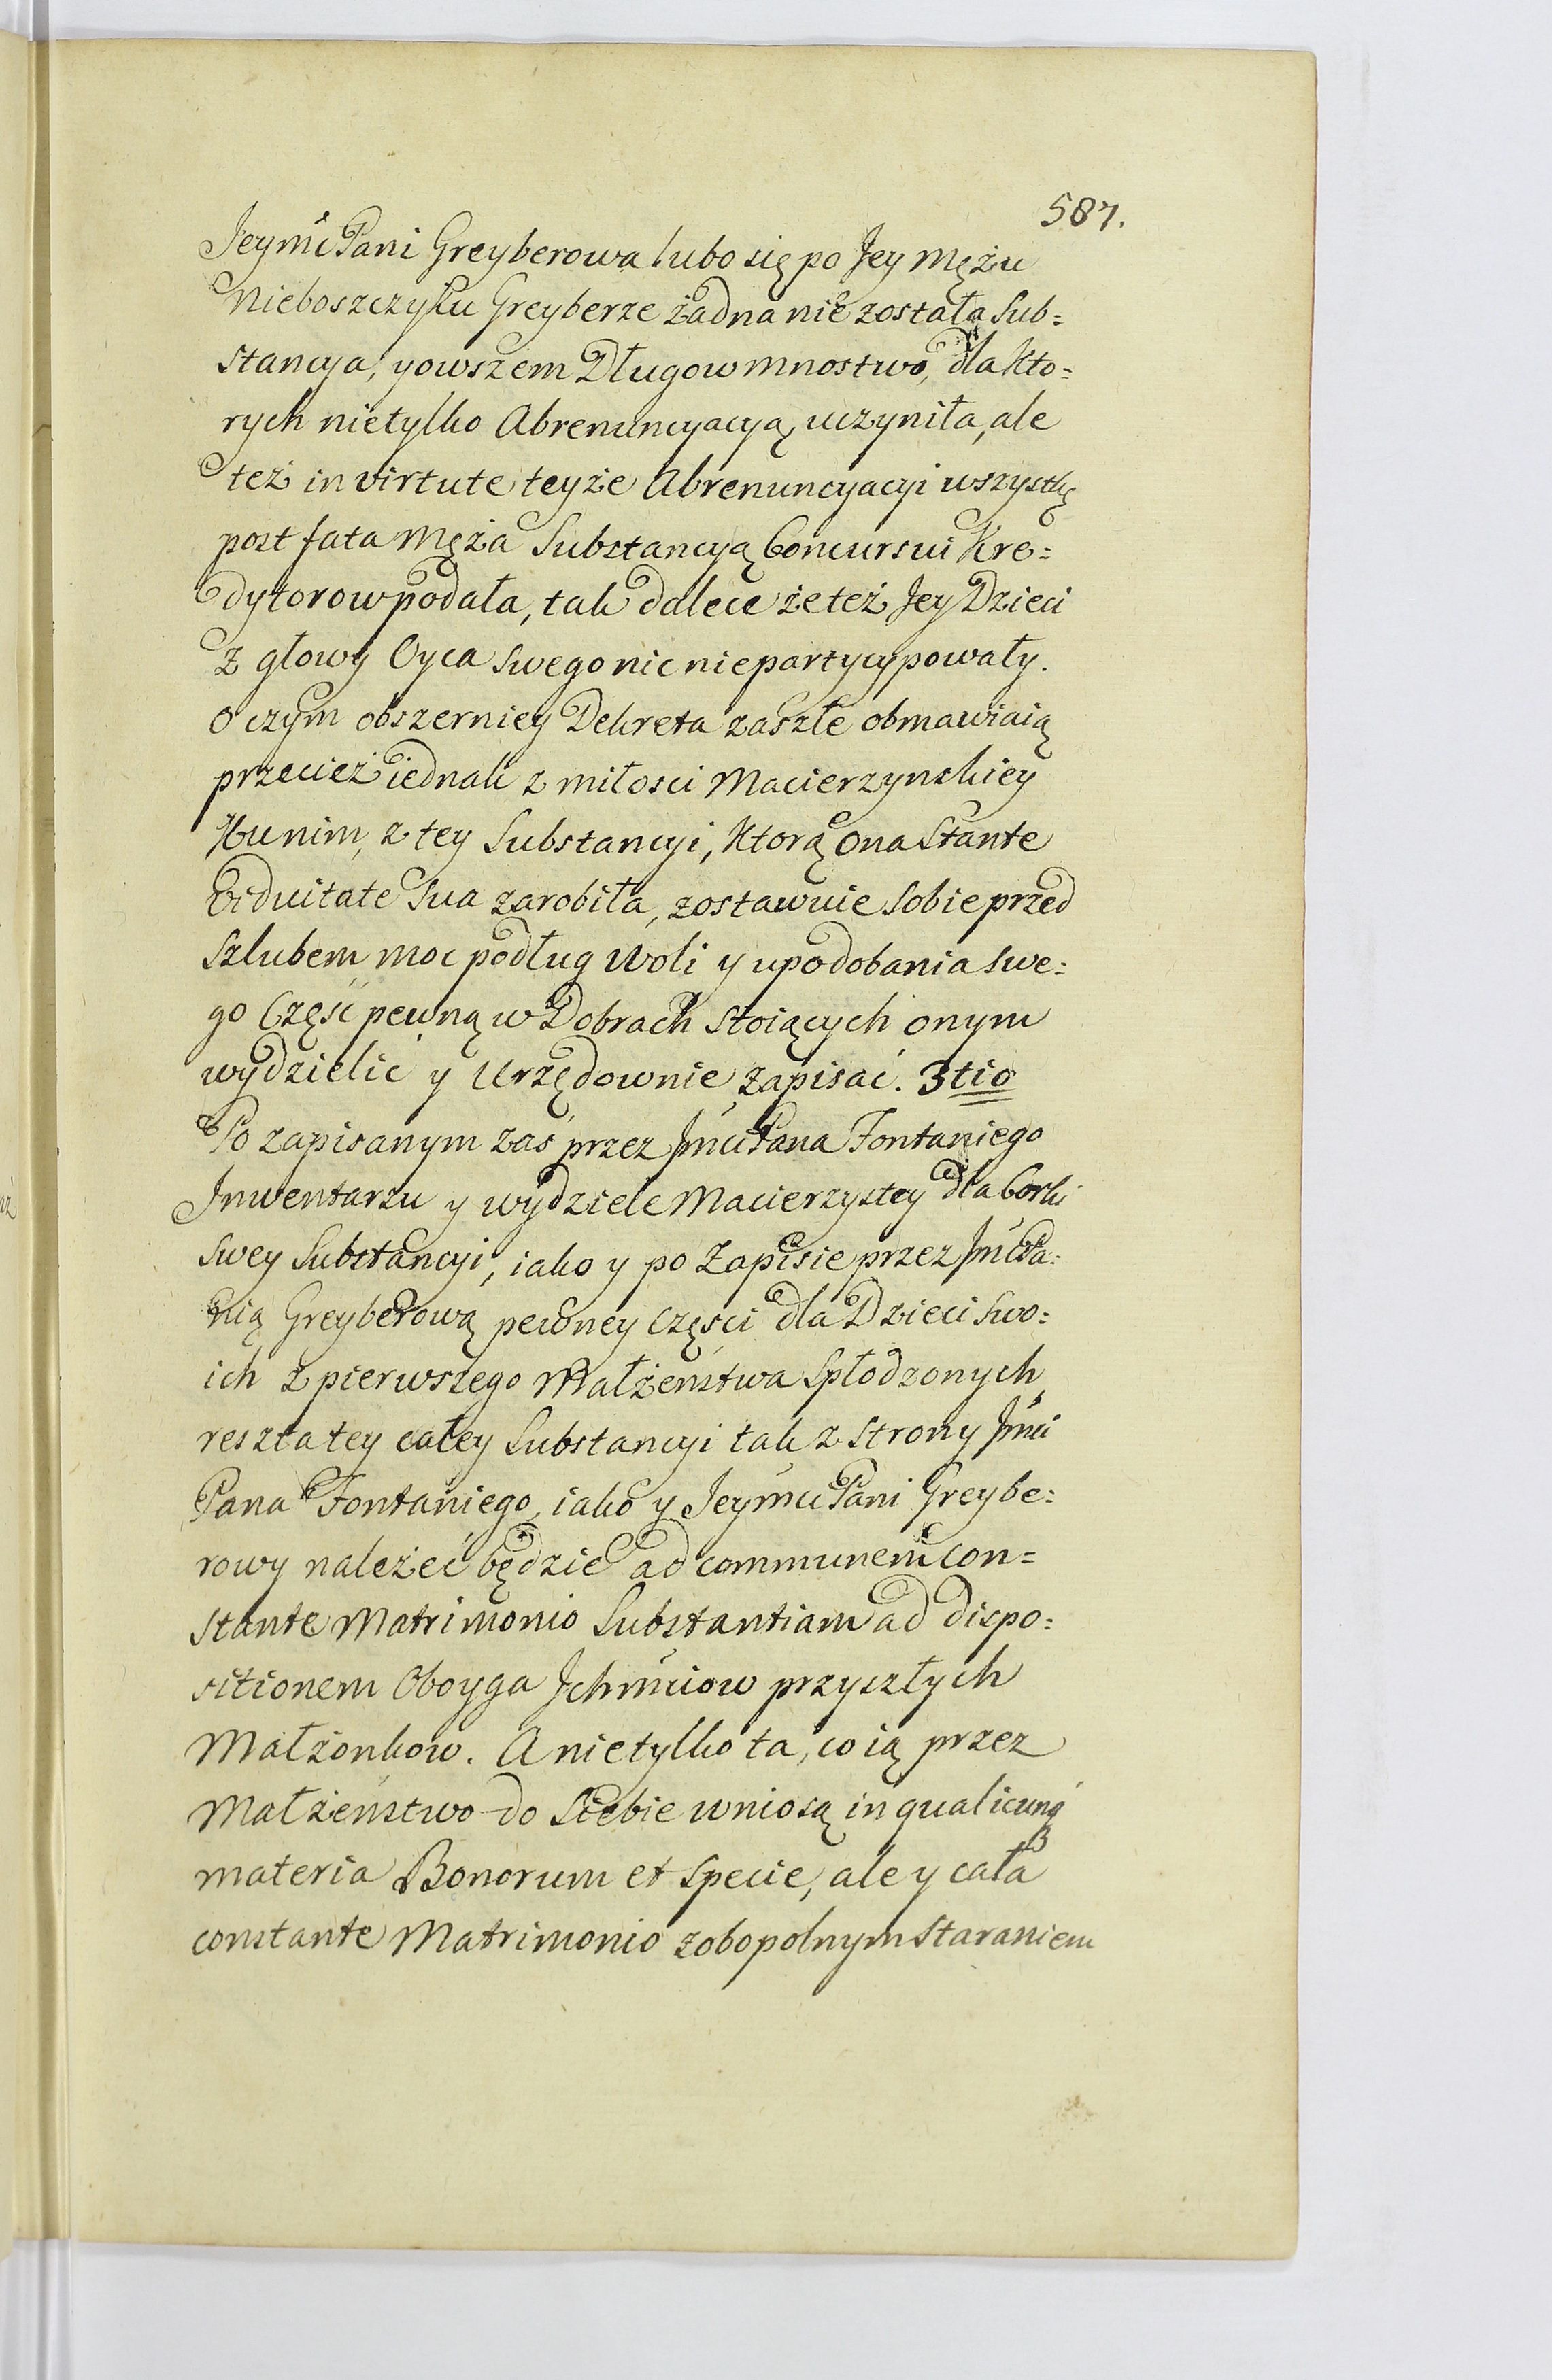 587.
Jeymć Pani Greyberowa lubo się po Jey Mężu
Nieboszczyku Greyberze żadna nie została Sub=
stancya, y owszem Długow mnostwo, dla kto=
rych nietylko Abrenuncyacyą uczyniła, ale
też in virtute teyże Abrenuncyacyi wszystkę
post fata Męża Substancyą Concursui Kre=
dytorow podała, tak dalece że też Jey Dzieci
z głowy Oyca swego nic niepartycypowały.
O czym obszerniey Dekreta zaszłe obmawiaią
przecież iednak z miłosci Macierzynskiey
Ku nim, z tey Substancyi, Ktorą Ona Stante
Viduitate Sua zarobiła, zostawuie Sobie przed
Szlubem moc podług Woli y upodobania swe=
go Część pewną w Dobrach stoiących onym
wydzielić y Urzędownie zapisać. 3tio
Po zapisanym zaś przez Jmci Pana Fontaniego
Inwentarzu y wydziele Macierzystey dla Corki
Swey Substancyi, iako y po Zapisie przez Jmć Pa=
nią Greyberową pewney Części dla Dzieci Swo=
ich z pierwszego Małżeństwa Spłodzonych
reszta tey całey Substancyi tak z Strony Jmci
Pana Fontaniego, iako y Jeymci Pani Greybe=
rowy należeć będzie ad communem con=
stante Matrimonio Substantiam ad dispo=
sitionem Oboyga Ichmciow przyszłych
Małżonkow. A nietylko ta, co ią przez
Małżeństwo do Siebie wniosą in qualicunq
materia Bonorum et specie, ale y cała
constante Matrimonio zobopolnym Staraniem